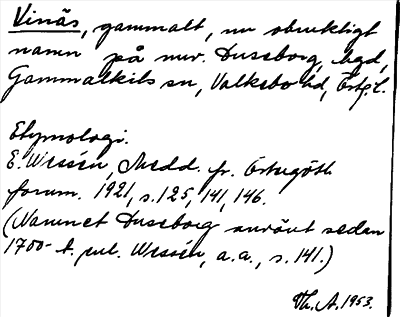 Vinäs, gammalt, nu obrukligt
namn på nuv. Duseborg, hgd,
Gammalkils sn, Valkebo hd, Östg. l.
Etymologi.
E. Wessén, Medd. fr. Östergötl.
fornm. 1921, s. 125, 141, 146.
(Namnet Duseborg använt sedan
1700-t. enl. Wessén, a.a., s. 141.)
Th. A. 1953.